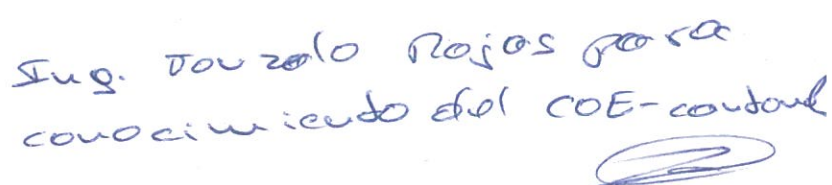 Ing. Gonzalo Rojas para
conocimiento del COE-cantonal